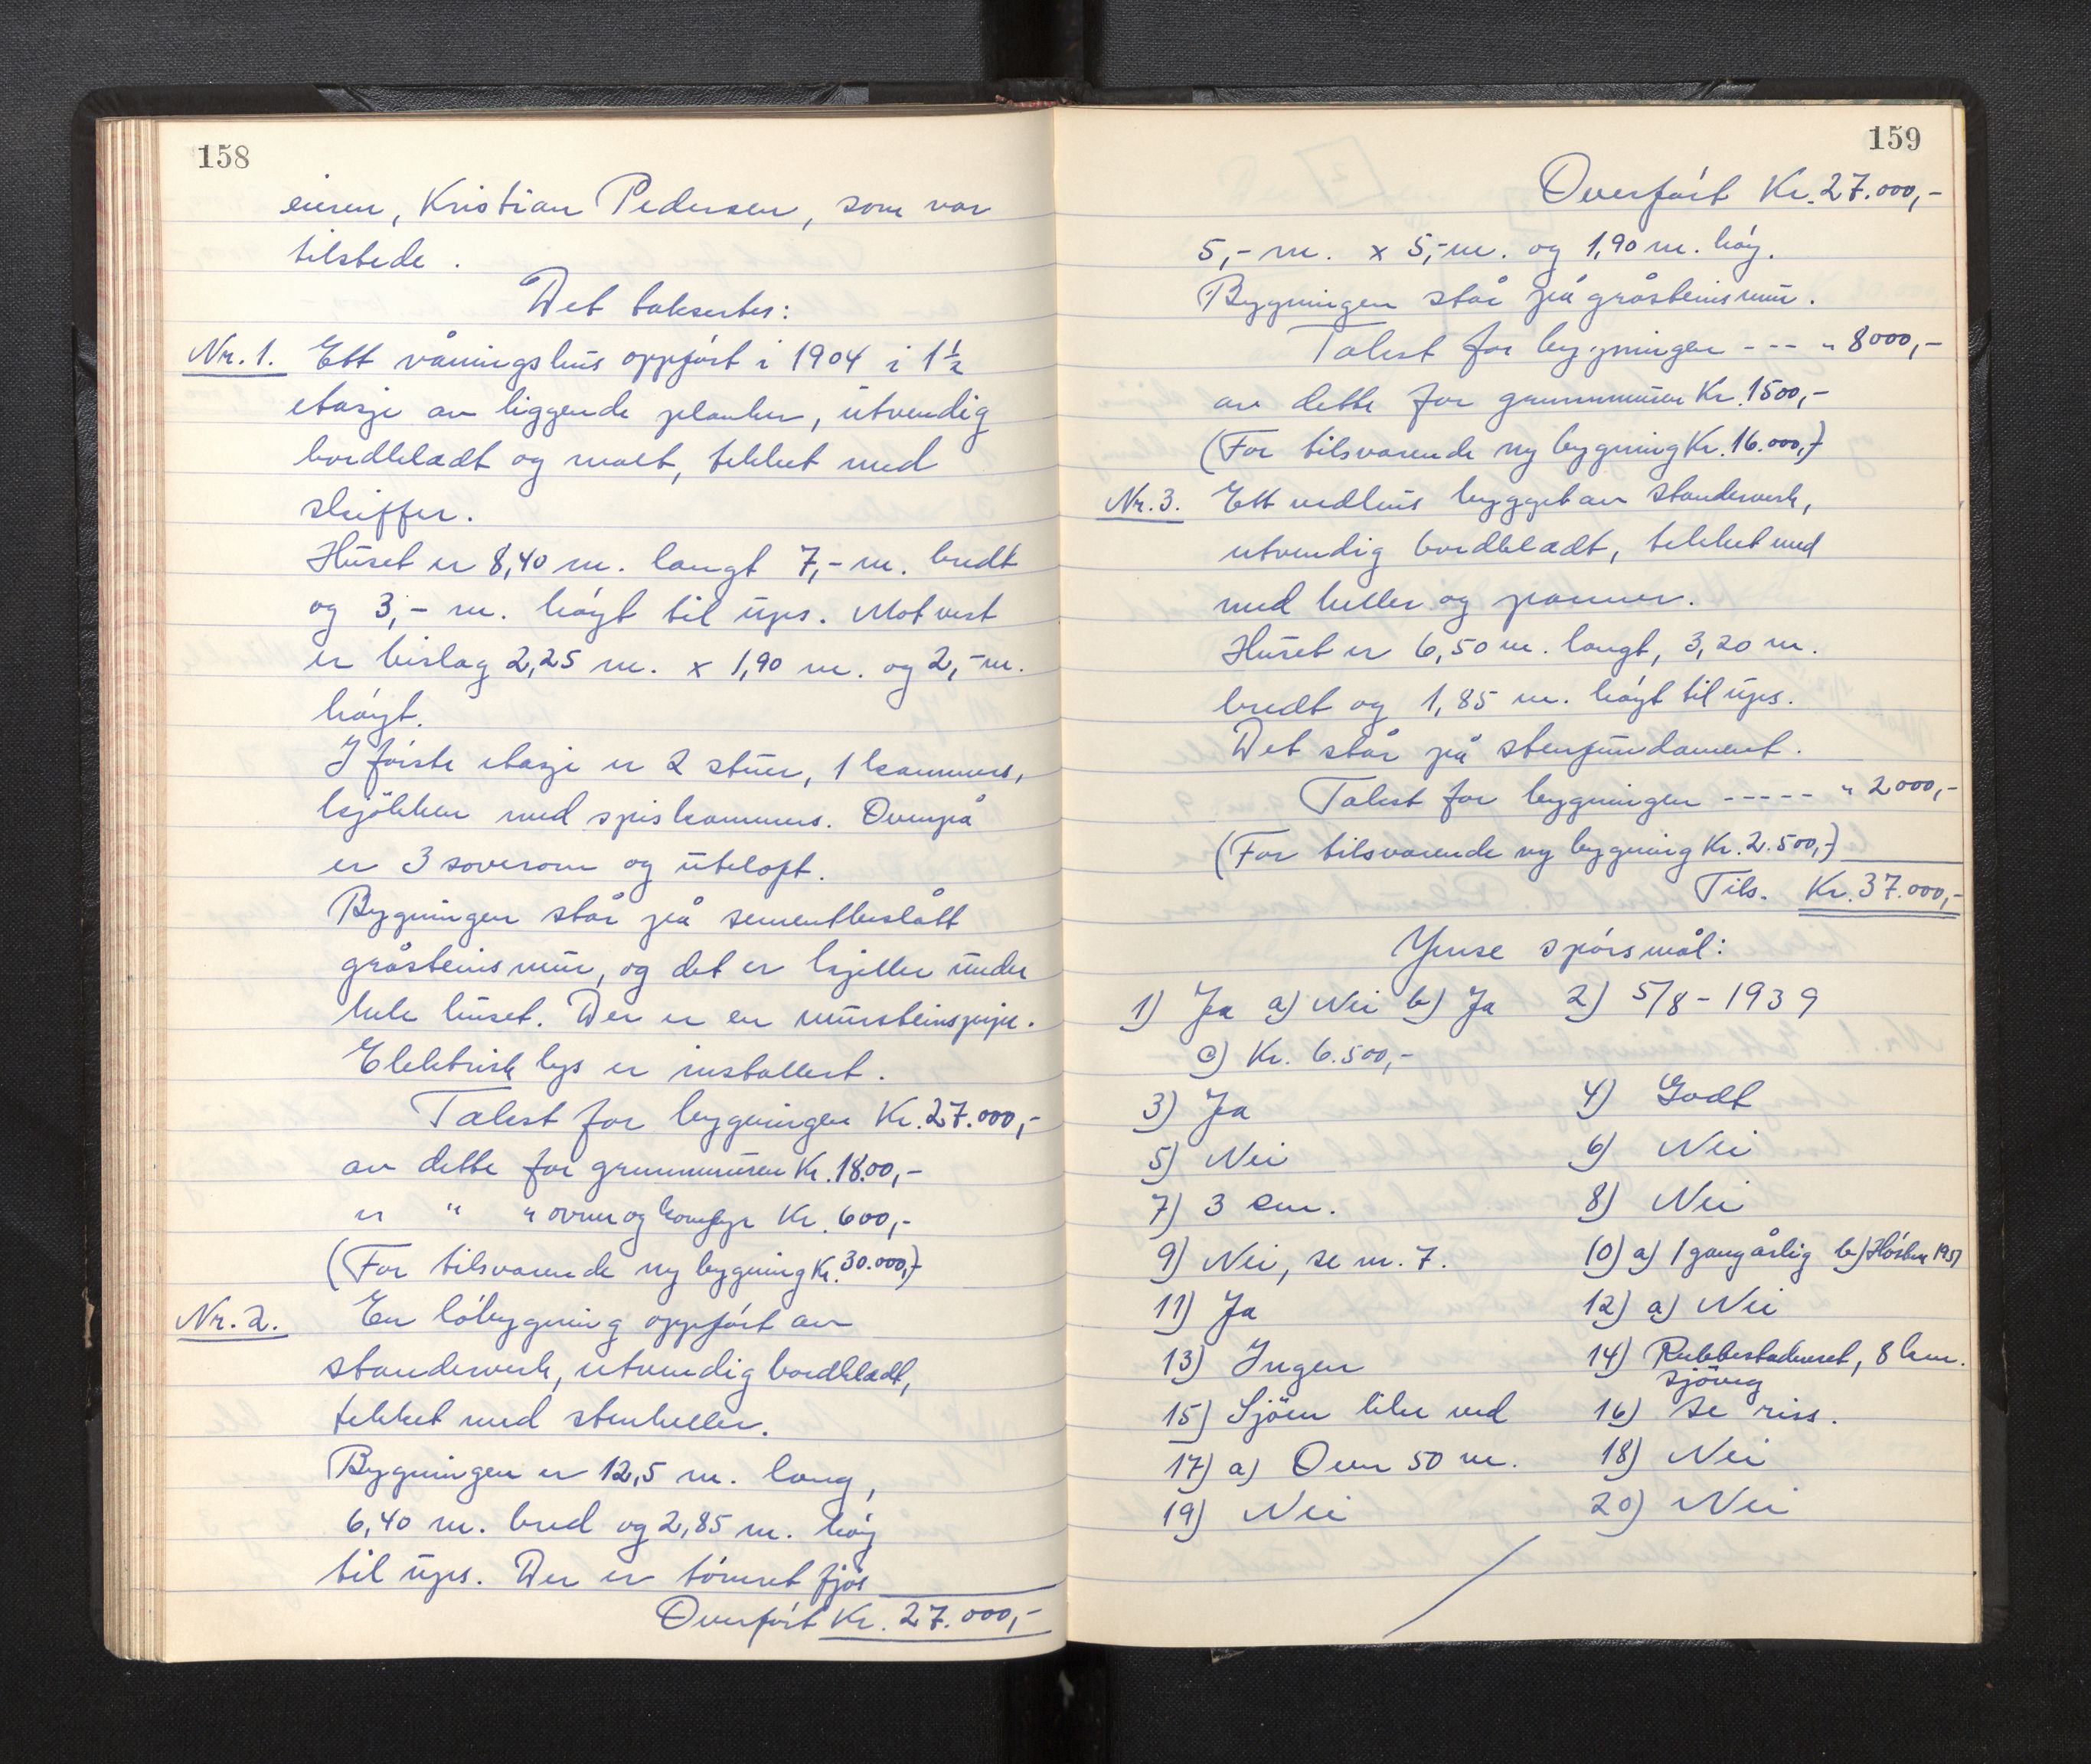 158
eieren, Kristian Pedersen, som var
tilstede.
Det taksertes:
Nr. 1. Ett våningshus oppført i 1904 i 1 1/2
etasje av liggende planker, utvendig
bordkledt og malt, tekket med
skiffer.
Huset er 8,40 m. langt 7,- m. bredt
og 3,- m. høgt til ups. Mot vest
er bislag 2,25 m. x 1,90 m. og 2,- m.
høgt.
I første etasje er 2 stuer, 1 kammers,
kjøkken med spiskammers. Ovenpå
er 3 soverom og uteloft.
Bygningen står på sementbeslått
gråsteinsmur, og det er kjeller under
hele huset. Der er en mursteinspipe.
Elektrisk lys er installert.
Takst for bygningen Kr. 27.000,-
av dette for grunnmuren Kr. 1800,-
" " " ovner og komfyr Kr. 600,-
(For tilsvarende ny bygning Kr. 30.000,-)
Nr. 2. En løbygning oppført av
standerverk, utvendig bordkledt,
tekket med stenheller.
Bygningen er 12,5 m. lang,
6,40 m. bred og 2,85 m. høg
til ups. Der er tømret fjøs
Overført Kr. 27.000,-
159
Overført Kr. 27.000,-
5,- m. x 5,- m. og 1,90 m. høg.
Bygningen står på gråsteinsmur.
Takst for bygningen - - - " 8000,-
av dette for grunnmuren Kr. 1500,-
(For tilsvarende ny bygning Kr. 16.000,-)
Nr. 3. Ett vedhus bygget av standerverk,
utvendig bordkledt, tekket med
med heller og panner.
Huset er 6,50 m. langt, 3,20 m.
bredt og 1,85 m. høgt til ups.
Det står på stenfundament.
Takst for bygningen - - - - - " 2000,-
(For tilsvarende ny bygning Kr. 2.500,-)
Tils. Kr. 37.000,-
Ymse spørsmål:
1) Ja a) Nei b) Ja 2) 5/8 - 1939
c) Kr. 6.500,-
3) Ja 4) Godt
5) Nei 6) Nei
7) 3 cm. 8) Nei
9) Nei, se nr. 7. 10) a) 1 gang årlig b) Høsten 1951
11) Ja 12) a) Nei
13) Ingen 14) Rubbestadneset, 8 km.
sjøveg
15) Sjøen like ved 16) Se riss.
17) a) Over 50 m. 18) Nei
19) Nei 20) Nei